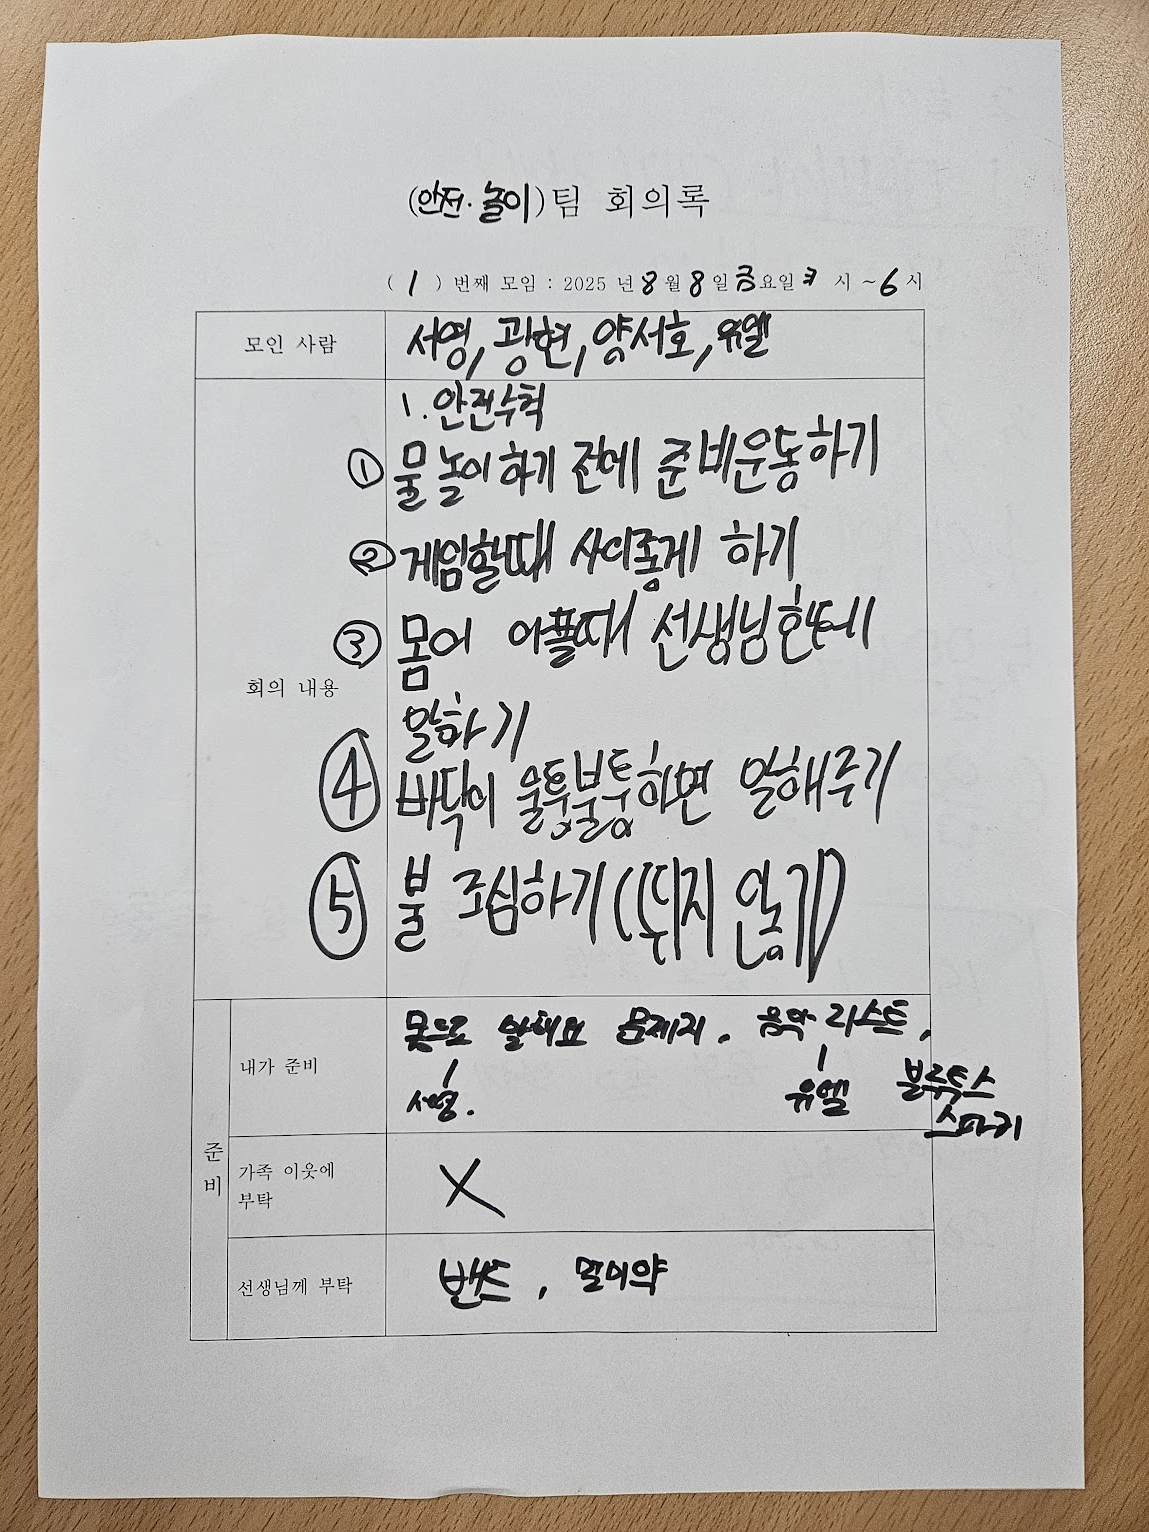 (안전·놀이)팀 회의록
( 1 ) 번째 모임 : 2025 년 8 월 8 일 금요일 시 ~ 6 시
모인 사람
서영, 광현, 양서호, 유엘
회의 내용
1. 안전수칙
① 물놀이하기 전에 준비운동하기
② 게임할때 사이좋게 하기
③ 몸이 아플때 선생님한테
말하기
④ 바닥이 울퉁불퉁하면 말해주기
⑤ 불 조심하기 (뛰지 않기)
준비
내가 준비
몸으로 말해요 문제지, 음악 리스트,
서영. 유엘 블루투스
스피커
가족 이웃에
부탁
X
선생님께 부탁
밴드, 멀미약